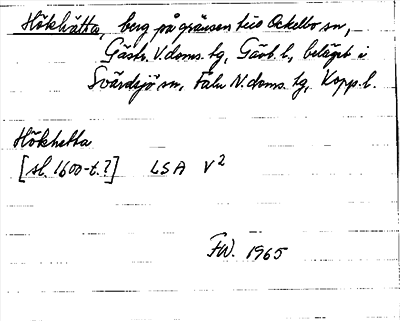 Hökhätta, berg på gränsen till Ockelbo sn,
Gästr. V. doms. tg, Gävb. l, beläget i
Svärdsjö sn, Falu N. doms. tg, Kopp. l.
Hökhetta
[sl. 1600-t.?] LSA V²
FW. 1965